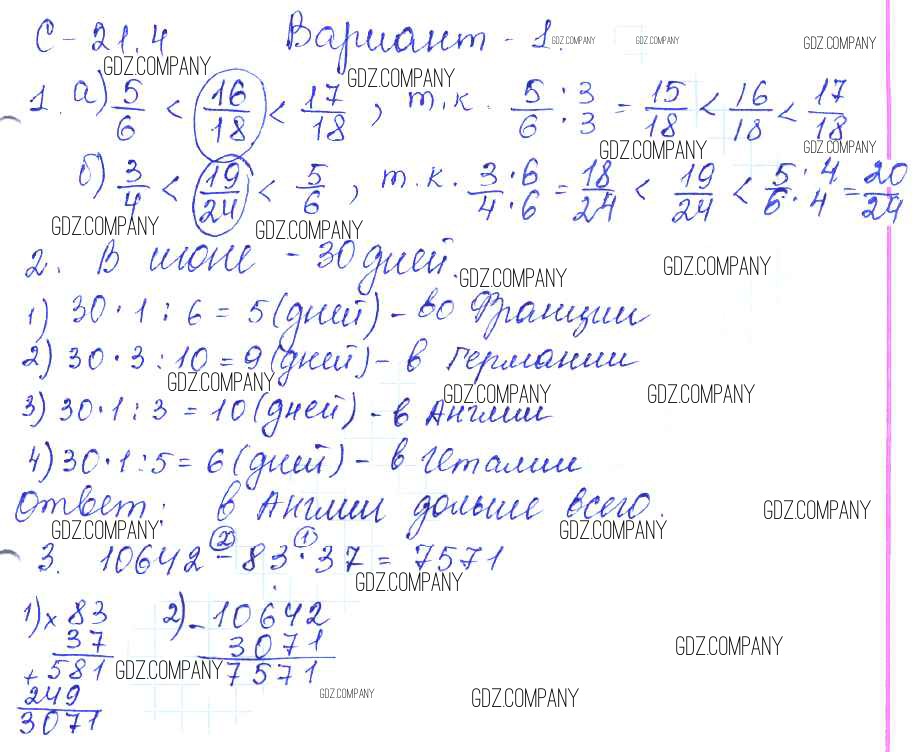 С-21.4 Вариант-1.
GDZ.COMPANY GDZ.COMPANY GDZ.COMPANY
GDZ.COMPANY GDZ.COMPANY
1. а) 5/6 < 16/18 < 17/18, т.к. 5·3/6·3 = 15/18 < 16/18 < 17/18
GDZ.COMPANY GDZ.COMPANY
б) 3/4 < 19/24 < 5/6, т.к. 3·6/4·6 = 18/24 < 19/24 < 5·4/6·4 = 20/24
GDZ.COMPANY GDZ.COMPANY
2. В июне - 30 дней.
GDZ.COMPANY GDZ.COMPANY
1) 30·1:6 = 5 (дней) - во Франции
2) 30·3:10 = 9 (дней) - в Германии
GDZ.COMPANY GDZ.COMPANY GDZ.COMPANY
3) 30·1:3 = 10 (дней) - в Англии
4) 30·1:5 = 6 (дней) - в Италии
Ответ: в Англии дольше всего.
GDZ.COMPANY GDZ.COMPANY GDZ.COMPANY
2 1
3. 10642 - 83·37 = 7571
GDZ.COMPANY
1) × 83 2) - 10642
37 3071
+ 581 7571
GDZ.COMPANY GDZ.COMPANY
249
GDZ.COMPANY GDZ.COMPANY
3071